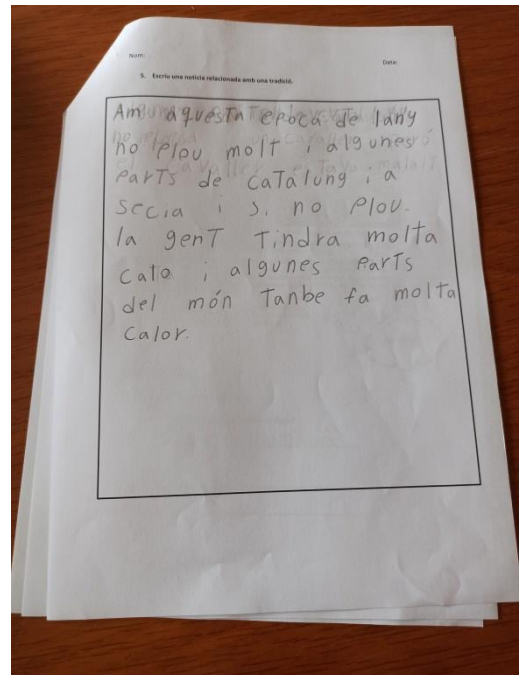 Nom:
Data:
5. Escriu una notícia relacionada amb una tradició.
Am aquesta epoca de lany
no plou molt i algunes
parts de cataluny i a
secia i si no plou.
la gent tindra molta
calo i algunes parts
del món tanbe fa molta
calor.